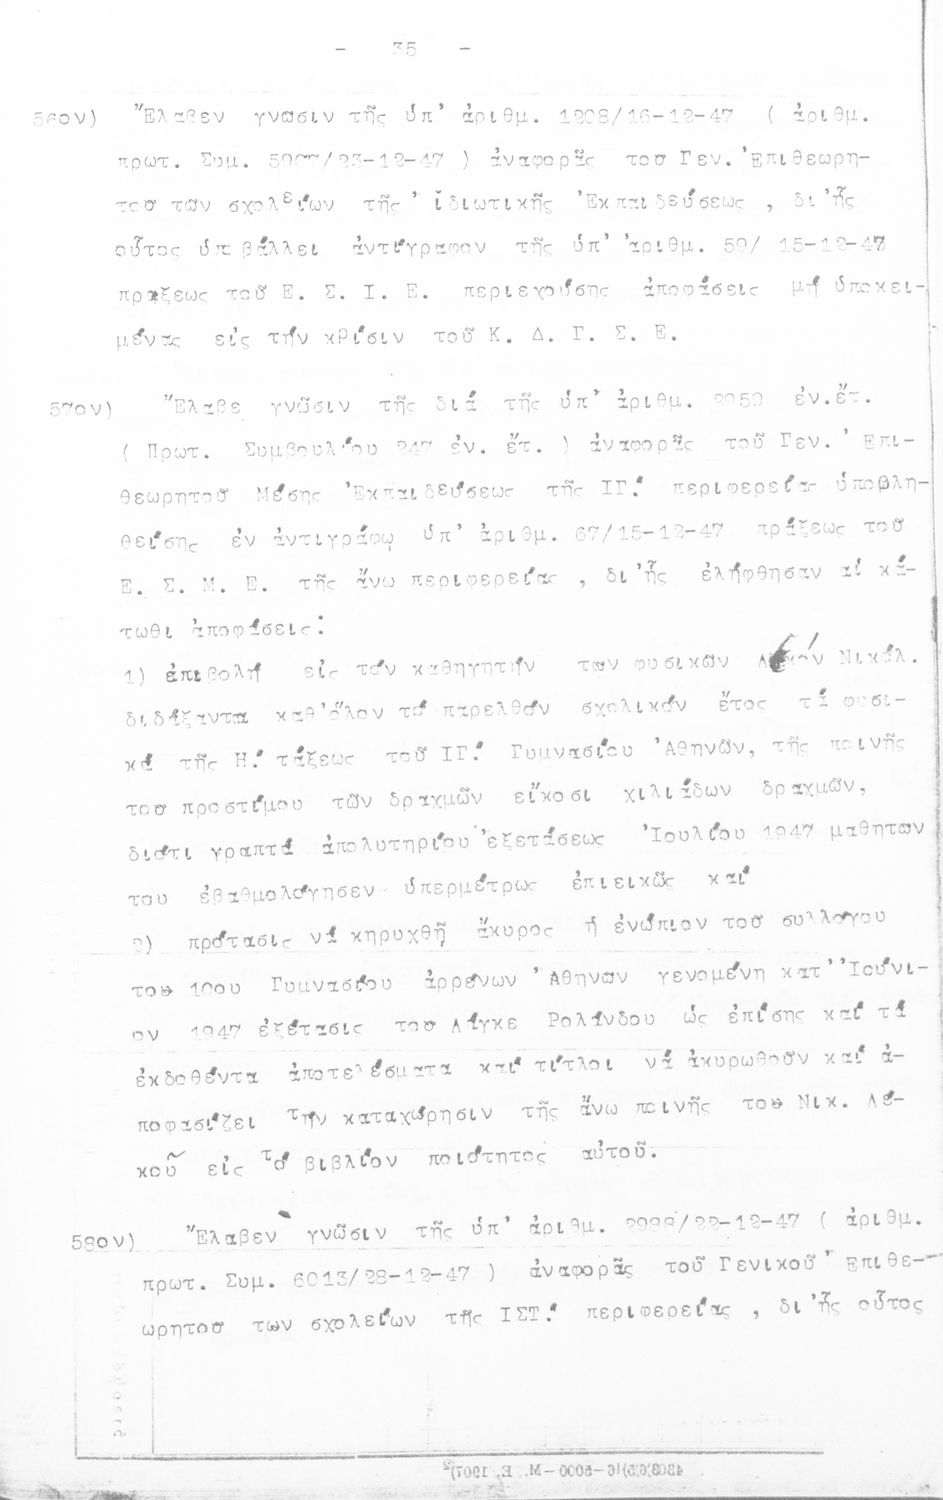 - 35 -
56ον) Ἔλαβεν γνῶσιν τῆς ὑπ' ἀριθμ. 1298/16-12-47 ( ἀριθμ.
πρωτ. Συμ. /23-12-47 ) ἀναφορᾶς τοῦ Γεν. Ἐπιθεωρη-
τοῦ τῶν σχολείων τῆς ἰδιωτικῆς Ἐκπαιδεύσεως , δι' ἧς
οὗτος ὑποβάλλει ἀντίγραφον τῆς ὑπ' ἀριθμ. 59/ 15-12-47
πράξεως τοῦ Ε. Σ. Ι. Ε. περιεχούσης ἀποφάσεις μή ὑποκει-
μένας εἰς τήν κρίσιν τοῦ Κ. Δ. Γ. Σ. Ε.
57ον) Ἔλαβε γνῶσιν τῆς διά τῆς ὑπ' ἀριθμ. 2959 ἐν.ἔτ.
( Πρωτ. Συμβουλίου 247 ἐν. ἔτ. ) ἀναφορᾶς τοῦ Γεν. Ἐπι-
θεωρητοῦ Μέσης Ἐκπαιδεύσεως τῆς ΙΓ.' περιφερείας ὑποβλη-
θείσης ἐν ἀντιγράφῳ ὑπ' ἀριθμ. 67/15-12-47 πράξεως τοῦ
Ε. Σ. Μ. Ε. τῆς ἄνω περιφερείας , δι' ἧς ἐλήφθησαν αἱ κά-
τωθι ἀποφάσεις:
1) ἐπιβολή εἰς τόν καθηγητήν τῶν φυσικῶν Νικόλ.
διδάξαντα καθ' ὅλον τό παρελθόν σχολικόν ἔτος τά φυσι-
κά τῆς Η.' τάξεως τοῦ ΙΓ.' Γυμνασίου Ἀθηνῶν, τῆς ποινῆς
τοῦ προστίμου τῶν δραχμῶν εἴκοσι χιλιάδων δραχμῶν,
διότι γραπτά ἀπολυτηρίου ἐξετάσεως Ἰουλίου 1947 μαθητῶν
του ἐβαθμολόγησεν ὑπερμέτρως ἐπιεικῶς καί
2) πρότασις νά κηρυχθῇ ἄκυρος ἡ ἐνώπιον τοῦ συλλόγου
τοῦ 10ου Γυμνασίου ἀρρένων Ἀθηνῶν γενομένη κατ' Ἰούνι-
ον 1947 ἐξέτασις τοῦ Λάγκε Ρολάνδου ὡς ἐπίσης καί τά
ἐκδοθέντα ἀποτελέσματα καί τίτλοι νά ἀκυρωθοῦν καί ἀ-
ποφασίζει τήν καταχώρησιν τῆς ἄνω ποινῆς τοῦ Νικ. Λέ-
κοῦ εἰς τό βιβλίον ποιότητος αὐτοῦ.
58ον) Ἔλαβεν γνῶσιν τῆς ὑπ' ἀριθμ. 2988/22-12-47 ( ἀριθμ.
πρωτ. Συμ. 6013/28-12-47 ) ἀναφορᾶς τοῦ Γενικοῦ Ἐπιθε-
ωρητοῦ τῶν σχολείων τῆς ΙΣΤ.' περιφερείας , δι' ἧς οὗτος